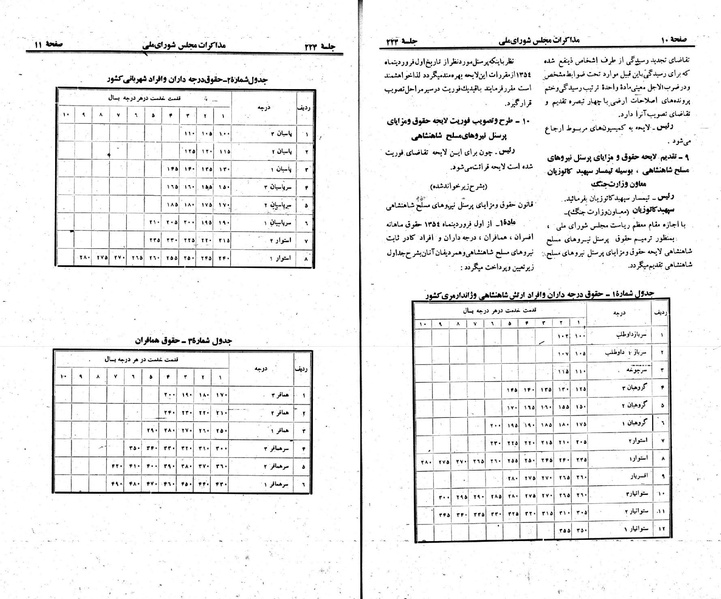 صفحهٔ ۱۰ مذاکرات مجلس شورای‌ملی جلسهٔ ۲۲۳
تقاضای تجدید رسیدگی از طرف اشخاص ذینفع شده
که برای رسیدگی باین قبیل موارد تحت ضوابط مشخص
و در ضرب‌الاجل معینی مادهٔ واحدهٔ ترتیب رسیدگی وختم
پرونده‌های اصلاحات ارضی با چهار تبصره تقدیم و
تقاضای تصویب آنرا دارد.
رئیس ـ لایحه به کمیسیون‌های مربوط ارجاع
می‌شود.
۹ ـ تقدیم لایحه حقوق و مزایای پرسنل نیروهای
مسلح شاهنشاهی ، بوسیله تیمسار سپهبد کاتوزیان
معاون وزارت‌جنگ
رئیس ـ تیمسار سپهبد کاتوزیان بفرمائید.
سپهبد کاتوزیان (معاون وزارت جنگ)ـ
با اجازه مقام معظم ریاست مجلس شورای ملی ،
بمنظور ترمیم حقوق پرسنل نیروهای مسلح
شاهنشاهی لایحه حقوق و مزایای پرسنل نیروهای مسلح
شاهنشاهی تقدیم میگردد.
نظر باینکه پرسنل مورد نظر از تاریخ اول فروردینماه
۱۳۵۴ از مقررات این لایحه بهره‌مند میگردد لذا خواهشمند
است مقرر فرمایند با قید یک فوریت در سیر مراحل تصویب
قرار گیرد.
۱۰ ـ طرح و تصویب فوریت لایحه حقوق ومزایای
پرسنل نیروهای مسلح شاهنشاهی
رئیس ـ چون برای این لایحه تقاضای فوریت
شده است لایحه قرائت می‌شود.
(بشرح زیر خوانده شد)
قانون حقوق و مزایای پرسنل نیروهای مسلح شاهنشاهی
ماده۱ـ از اول فروردینماه ۱۳۵۴ حقوق ماهانه
افسران ، همافران ، درجه داران و افراد کادر ثابت
نیروهای مسلح شاهنشاهی و همردیفان آنان بشرح جداول
زیر تعیین و پرداخت میگردد :
جدول شمارهٔ۱ ـ حقوق درجه داران و افراد ارتش شاهنشاهی وژاندارمری کشور
ردیف درجه قدمت خدمت در هر درجه بسال
۱ ۲ ۳ ۴ ۵ ۶ ۷ ۸ ۹ ۱۰
۱ سرباز داوطلب ۱۰۰ ۱۰۲
۲ سرباز ۱ داوطلب ۱۰۵ ۱۰۷
۳ سرجوخه ۱۱۰ ۱۱۵
۴ گروهبان ۳ ۱۲۵ ۱۳۰ ۱۳۵ ۱۴۰ ۱۴۵
۵ گروهبان ۲ ۱۵۰ ۱۵۵ ۱۶۰ ۱۶۵ ۱۷۰
۶ گروهبان ۱ ۱۷۵ ۱۸۰ ۱۸۵ ۱۹۰ ۱۹۵ ۲۰۰
۷ استوار ۲ ۲۰۵ ۲۱۰ ۲۱۵ ۲۲۰ ۲۲۵ ۲۳۰
۸ استوار ۱ ۲۳۵ ۲۴۰ ۲۴۵ ۲۵۰ ۲۵۵ ۲۶۰ ۲۶۵ ۲۷۰ ۲۷۵ ۲۸۰
۹ افسریار ۲۶۰ ۲۶۵ ۲۷۰ ۲۷۵ ۲۸۰
۱۰ ستوانیار ۳ ۲۶۰ ۲۶۵ ۲۷۰ ۲۷۵ ۲۸۰ ۲۸۵ ۲۹۰ ۲۹۵ ۳۰۰
۱۱ ستوانیار ۲ ۳۰۵ ۳۱۰ ۳۱۵ ۳۲۰ ۳۲۵ ۳۳۰ ۳۳۵ ۳۴۰ ۳۴۵
۱۲ ستوانیار ۱ ۳۵۰ ۳۵۵
جلسهٔ ۲۲۳ مذاکرات مجلس شورای‌ملی صفحهٔ ۱۱
جدول شمارهٔ۲ـ حقوق درجه داران و افراد شهربانی کشور
ردیف درجه قدمت خدمت در هر درجه بسال
۱ ۲ ۳ ۴ ۵ ۶ ۷ ۸ ۹ ۱۰
۱ پاسبان ۳ ۱۰۰ ۱۰۵ ۱۱۰
۲ پاسبان ۲ ۱۱۵ ۱۲۰ ۱۲۵
۳ پاسبان ۱ ۱۳۰ ۱۳۵ ۱۴۰ ۱۴۵
۴ سرپاسبان ۳ ۱۵۰ ۱۵۵ ۱۶۰ ۱۶۵
۵ سرپاسبان ۲ ۱۷۰ ۱۷۵ ۱۸۰ ۱۸۵
۶ سرپاسبان ۱ ۱۹۰ ۱۹۵ ۲۰۰ ۲۰۵ ۲۱۰
۷ استوار ۲ ۲۱۵ ۲۲۰ ۲۲۵ ۲۳۰ ۲۳۵
۸ استوار ۱ ۲۴۰ ۲۴۵ ۲۵۰ ۲۵۵ ۲۶۰ ۲۶۵ ۲۷۰ ۲۷۵ ۲۸۰
جدول شمارهٔ۳ ـ حقوق همافران
ردیف درجه قدمت خدمت در هر درجه بسال
۱ ۲ ۳ ۴ ۵ ۶ ۷ ۸ ۹ ۱۰
۱ همافر ۳ ۱۷۰ ۱۸۰ ۱۹۰ ۲۰۰
۲ همافر ۲ ۲۱۰ ۲۲۰ ۲۳۰ ۲۴۰
۳ همافر ۱ ۲۵۰ ۲۶۰ ۲۷۰ ۲۸۰ ۲۹۰
۴ سرهمافر ۳ ۳۰۰ ۳۱۰ ۳۲۰ ۳۳۰ ۳۴۰ ۳۵۰
۵ سرهمافر ۲ ۳۶۰ ۳۷۰ ۳۸۰ ۳۹۰ ۴۰۰ ۴۱۰ ۴۲۰
۶ سرهمافر ۱ ۴۳۰ ۴۴۰ ۴۵۰ ۴۶۰ ۴۷۰ ۴۸۰ ۴۹۰